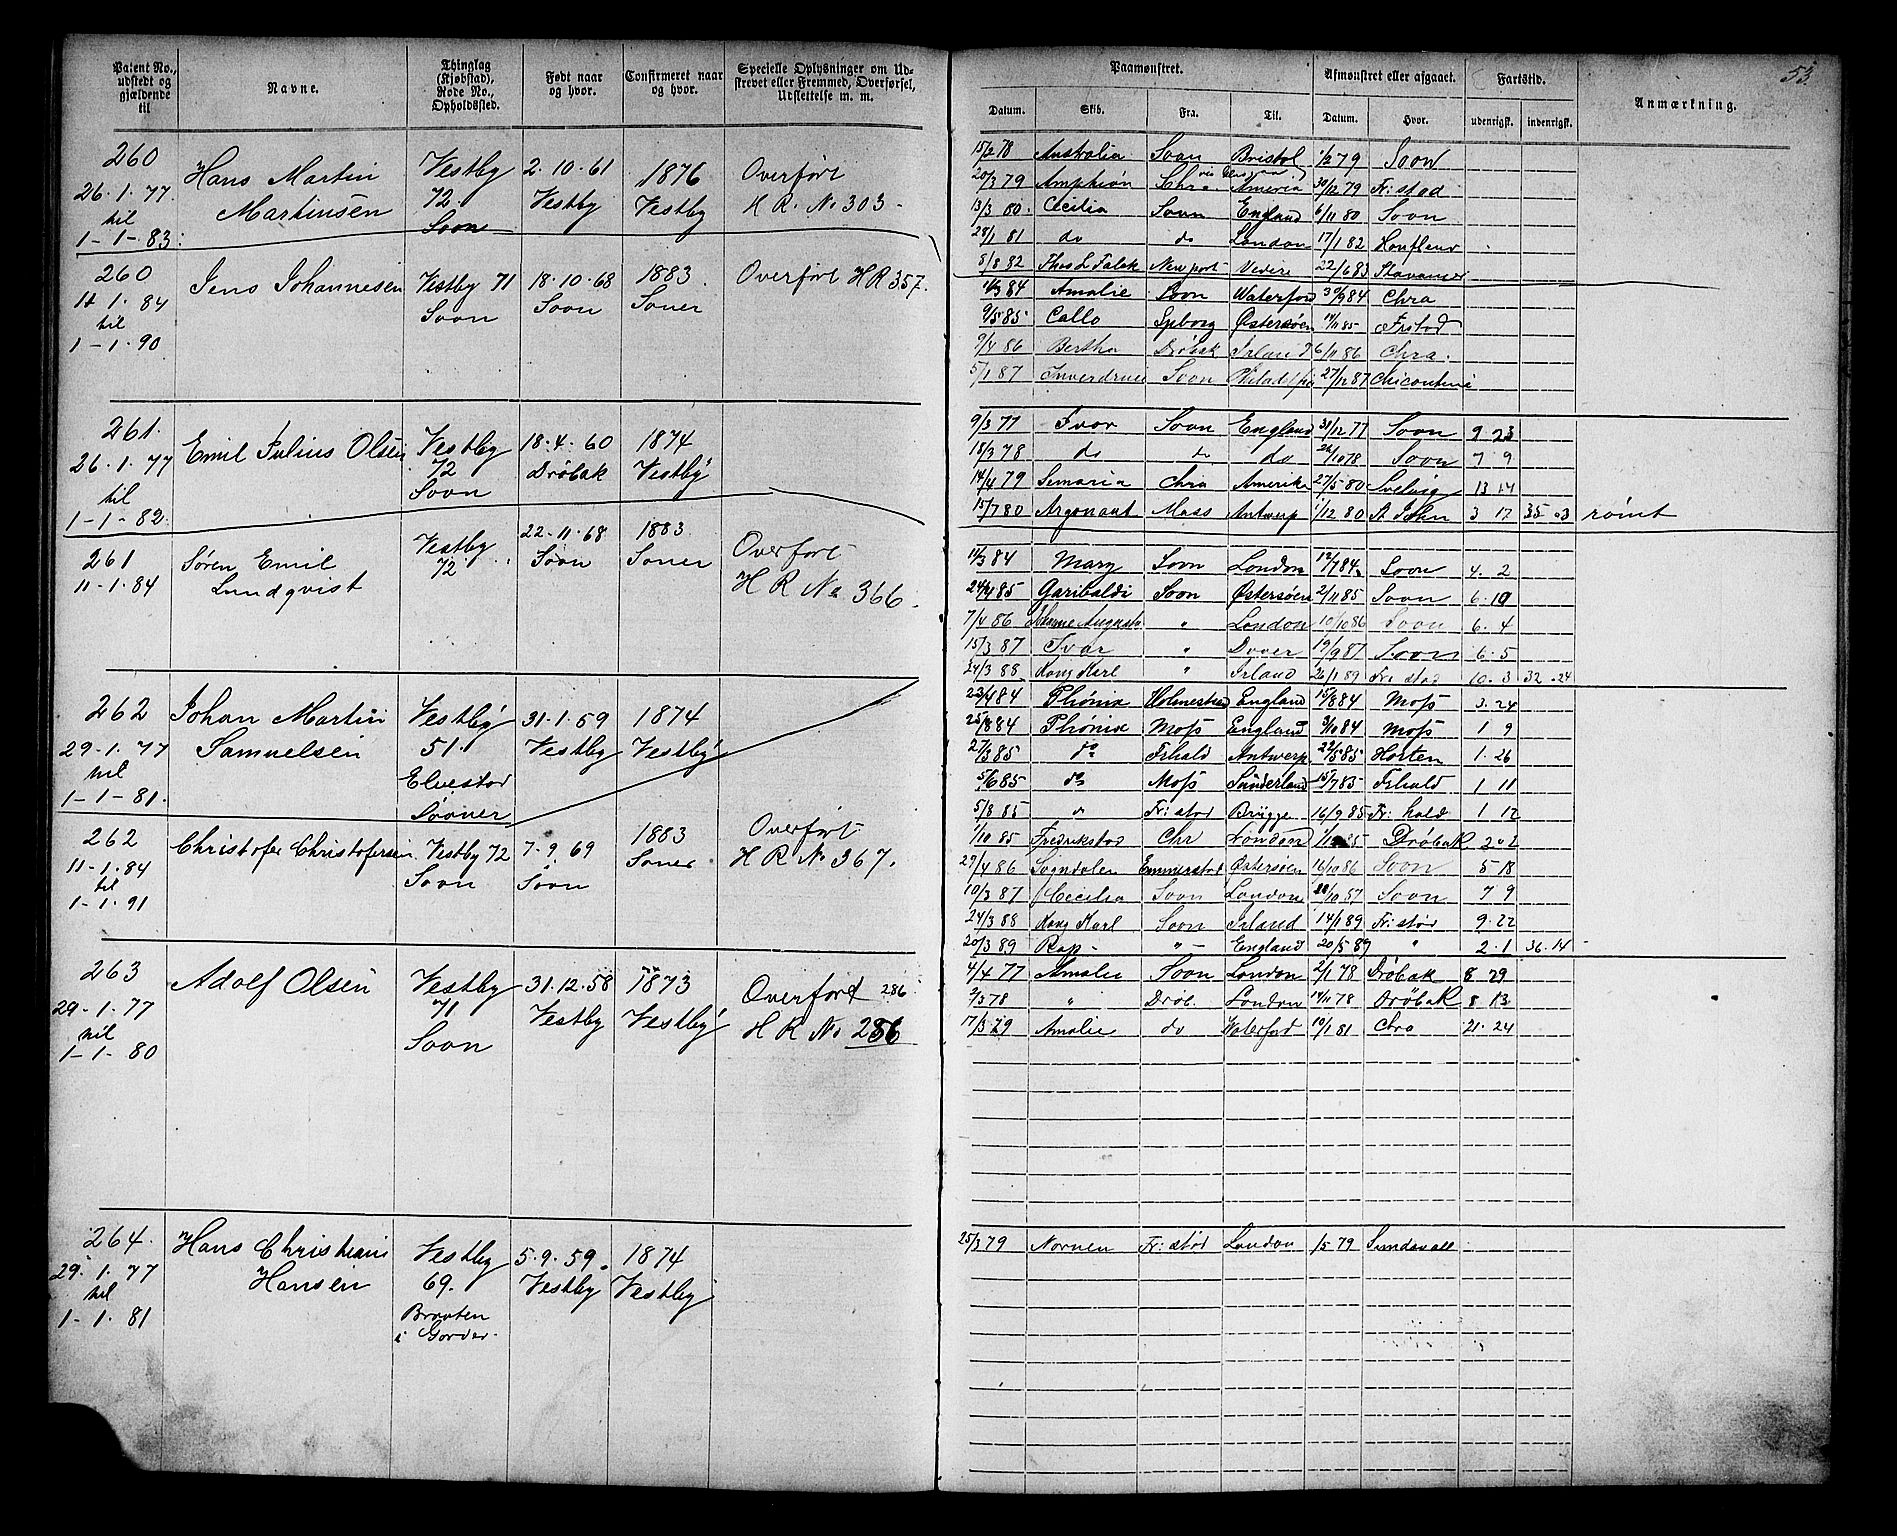 53
Patent No., udstedt og gjældende til
Navne.
Thinglag (Kjøbstad), Rode No., Opholdssted.
Født naar og hvor.
Confirmeret naar og hvor.
Specielle Oplysninger om Udstrevet eller Fremmed, Overførsel, Udslettelse m. m.
Paamønstret.
Afmønstret eller afgaaet.
Fartstid.
Anmærkning.
Datum. Skib. Fra. Til. Datum. Hvor. udenrigsk. indenrigsk.
260 Hans Martin Vestby 2.10.61 1876 Overført
26.1.77 Martinsen 72. Vestby Vestby H R. No 303-
til Soon
1-1-83.
15/2 78 Australia Soon Bristol 1/2 79 Soon
20/3 79 Amphion Chra Ameria 30/12 79 Fr: stad
13/3 80. Cecilia Soon England 6/11 80 Soon
28/1 81 do do London 17/1 82 Honfleur
5/8 82 Ths L Falck New port 22/6 83 Stavanger
260 Jens Johannesen Vestby 71 18.10.68 1883 Overført H R 357.
11.1.84 Soon Soon Soner
til
1-1.90
84 Amalie Soon Waterford 84 Chra
9/5 85 Callo Spborg Østersøen 85 Frstad
9/4 86 Bertha Drøbak Irland 6/11 86 Chra.
5/1 87 Soon 27/12 87
261. Emil Julius Olsen Vestby 18.4.60 1874
26.1.77 72 Drøbak Vestby
til Soon
1-1-82.
9/3 77 Ivar Soon England 31/12 77 Soon 9 23
18/3 78 do do do 78 Soon 7 9
14/4 79 Semaria Chra Amerika 27/5 80 Svelvig 13 14
15/7 80 Argonaut Moss Antwerp 1/12 80 St John 3 17 35 .. 3 rømt
261 Søren Emil Vestby 22.11.68 1883 Overført
11.1.84 Lundqvist 72 Soon Soner H R No 366.
84 Mary Soon London 12/7 84 Soon 4. 2
24/4 85 Garibaldi Soon Østersøen 2/11 85 Soon 6.19
7/4 86 Augusta " London 10/10 86 Soon 6.4
15/3 87 Ivar " Dover 19/9 87 Soon 6.5
24/3 88 Kong Karl " Irland 26/1 89 Fr: stad 10.3 32.24
262 Johan Martin Vestby 31.1.59 1874
29.1.77 Samuelsen 51. Vestby Vestby
til Elvestad
1-1-81. Sooner
23/4 84 Phønix Holmestrad England 84 Moss 3.24
84 Phønix Moss England 84 Moss 1 9
27/3 85 do Frhald Antwerp 22/5 85 Horten 1.26
5/6 85 do Moss Sunderland 15/7 85 Frhald 1 11
5/8 85 Fr: stad Brügge 16/9 85 Fr: hald 1 12
262 Christofer Christofersen Vestby 72 7.9.69 1883 Overført
11-1.84 Soon Soon Soner H R No 367.
til
1-1.91
1/10 85 Fredrikstad Chr London 85 Drøbak 2 0 2
29/4 86 Sogndalen Emmerstad Østersøen 16/10 86 Soon 5 18
10/3 87 Cecilia Soon London 87 Soon 7 9
24/3 88 Kong Karl Soon Irland 14/1 89 Fr: stad 9.22
20/3 89 Rap " England 20/5 89 " 2.1 36.14
263 Adolf Olsen Vestby 31.12.58 1873 Overført 286
29.1.77 71 Vestby Vestby H R No 286
til Soon
1-1-80
4/4 77 Amalie Soon London 2/1 78 Drøbak 8 29
2/3 78 " Drøb. London 14/11 78 Drøbak 8 13
17/3 79 Amalie do Waterford 19/1 81 Chra 21.24
264. Hans Christian Vestby 5.9.59. 1874
29.1.77 Hansen 69. Vestby Vestby
til Braaten
1-1.81 i Gorder.
25/3 79 Nornen Fr: stad London 1/5 79 Sundsvall